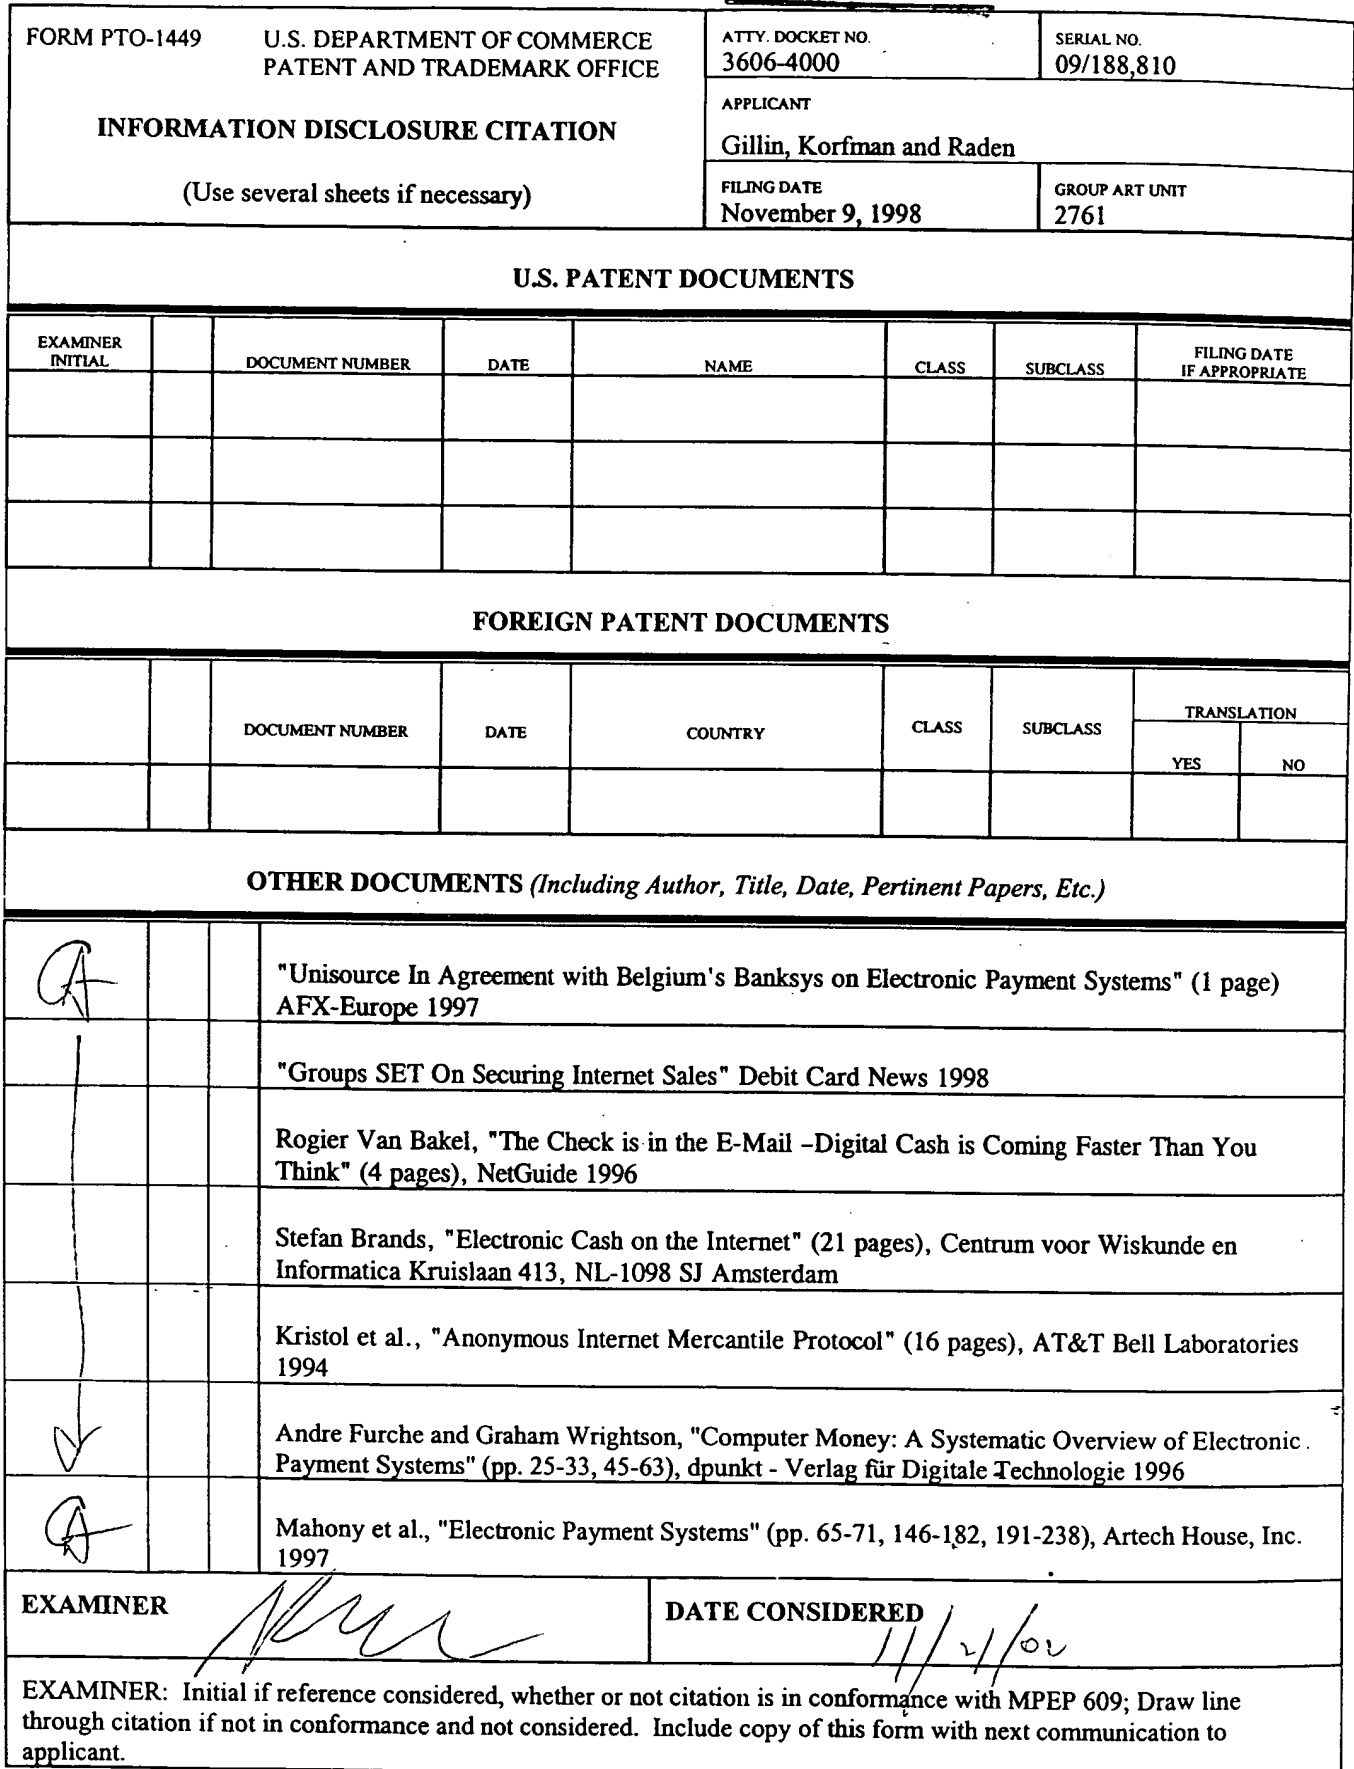 FORM PTO-1449
U.S. DEPARTMENT OF COMMERCE
PATENT AND TRADEMARK OFFICE
INFORMATION DISCLOSURE CITATION
(Use several sheets if necessary)
ATTY. DOCKET NO.
3606-4000
SERIAL NO.
09/188,810
APPLICANT
Gillin, Korfman and Raden
FILING DATE
November 9, 1998
GROUP ART UNIT
2761
U.S. PATENT DOCUMENTS
EXAMINER
INITIAL
DOCUMENT NUMBER
DATE
NAME
CLASS
SUBCLASS
FILING DATE
IF APPROPRIATE
FOREIGN PATENT DOCUMENTS
DOCUMENT NUMBER
DATE
COUNTRY
CLASS
SUBCLASS
TRANSLATION
YES
NO
OTHER DOCUMENTS (Including Author, Title, Date, Pertinent Papers, Etc.)
"Unisource In Agreement with Belgium's Banksys on Electronic Payment Systems" (1 page)
AFX-Europe 1997
"Groups SET On Securing Internet Sales" Debit Card News 1998
Rogier Van Bakel, "The Check is in the E-Mail –Digital Cash is Coming Faster Than You
Think" (4 pages), NetGuide 1996
Stefan Brands, "Electronic Cash on the Internet" (21 pages), Centrum voor Wiskunde en
Informatica Kruislaan 413, NL-1098 SJ Amsterdam
Kristol et al., "Anonymous Internet Mercantile Protocol" (16 pages), AT&T Bell Laboratories
1994
Andre Furche and Graham Wrightson, "Computer Money: A Systematic Overview of Electronic
Payment Systems" (pp. 25-33, 45-63), dpunkt - Verlag für Digitale Technologie 1996
Mahony et al., "Electronic Payment Systems" (pp. 65-71, 146-182, 191-238), Artech House, Inc.
1997
EXAMINER
DATE CONSIDERED
11/21/02
EXAMINER: Initial if reference considered, whether or not citation is in conformance with MPEP 609; Draw line
through citation if not in conformance and not considered. Include copy of this form with next communication to
applicant.